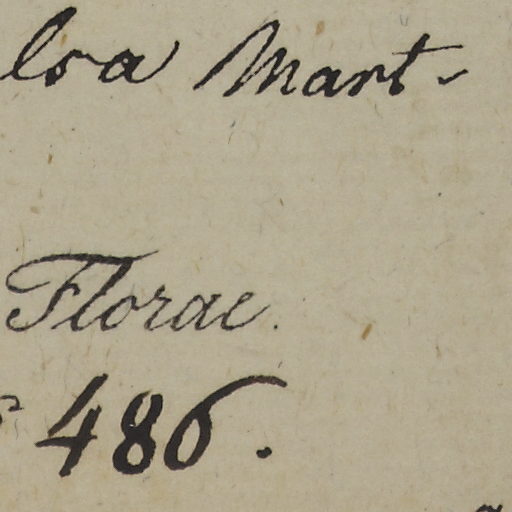 lsa Mart-
Florae.
486.